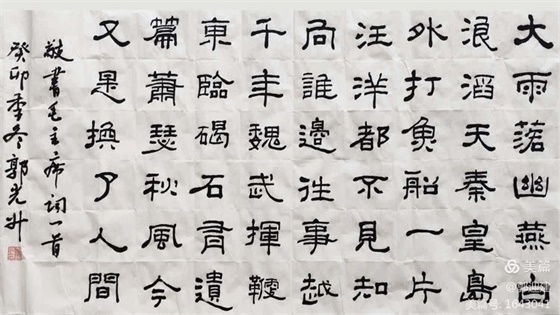 大雨落幽燕白
浪滔天秦皇島
外打魚船一片
汪洋都不見知
向誰邊往事越
千年魏武揮鞭
東臨碣石有遺
篇蕭瑟秋風今
又是換了人間
敬書毛主席詞一首
癸卯季冬郭光升
美篇
美篇号: 1643041